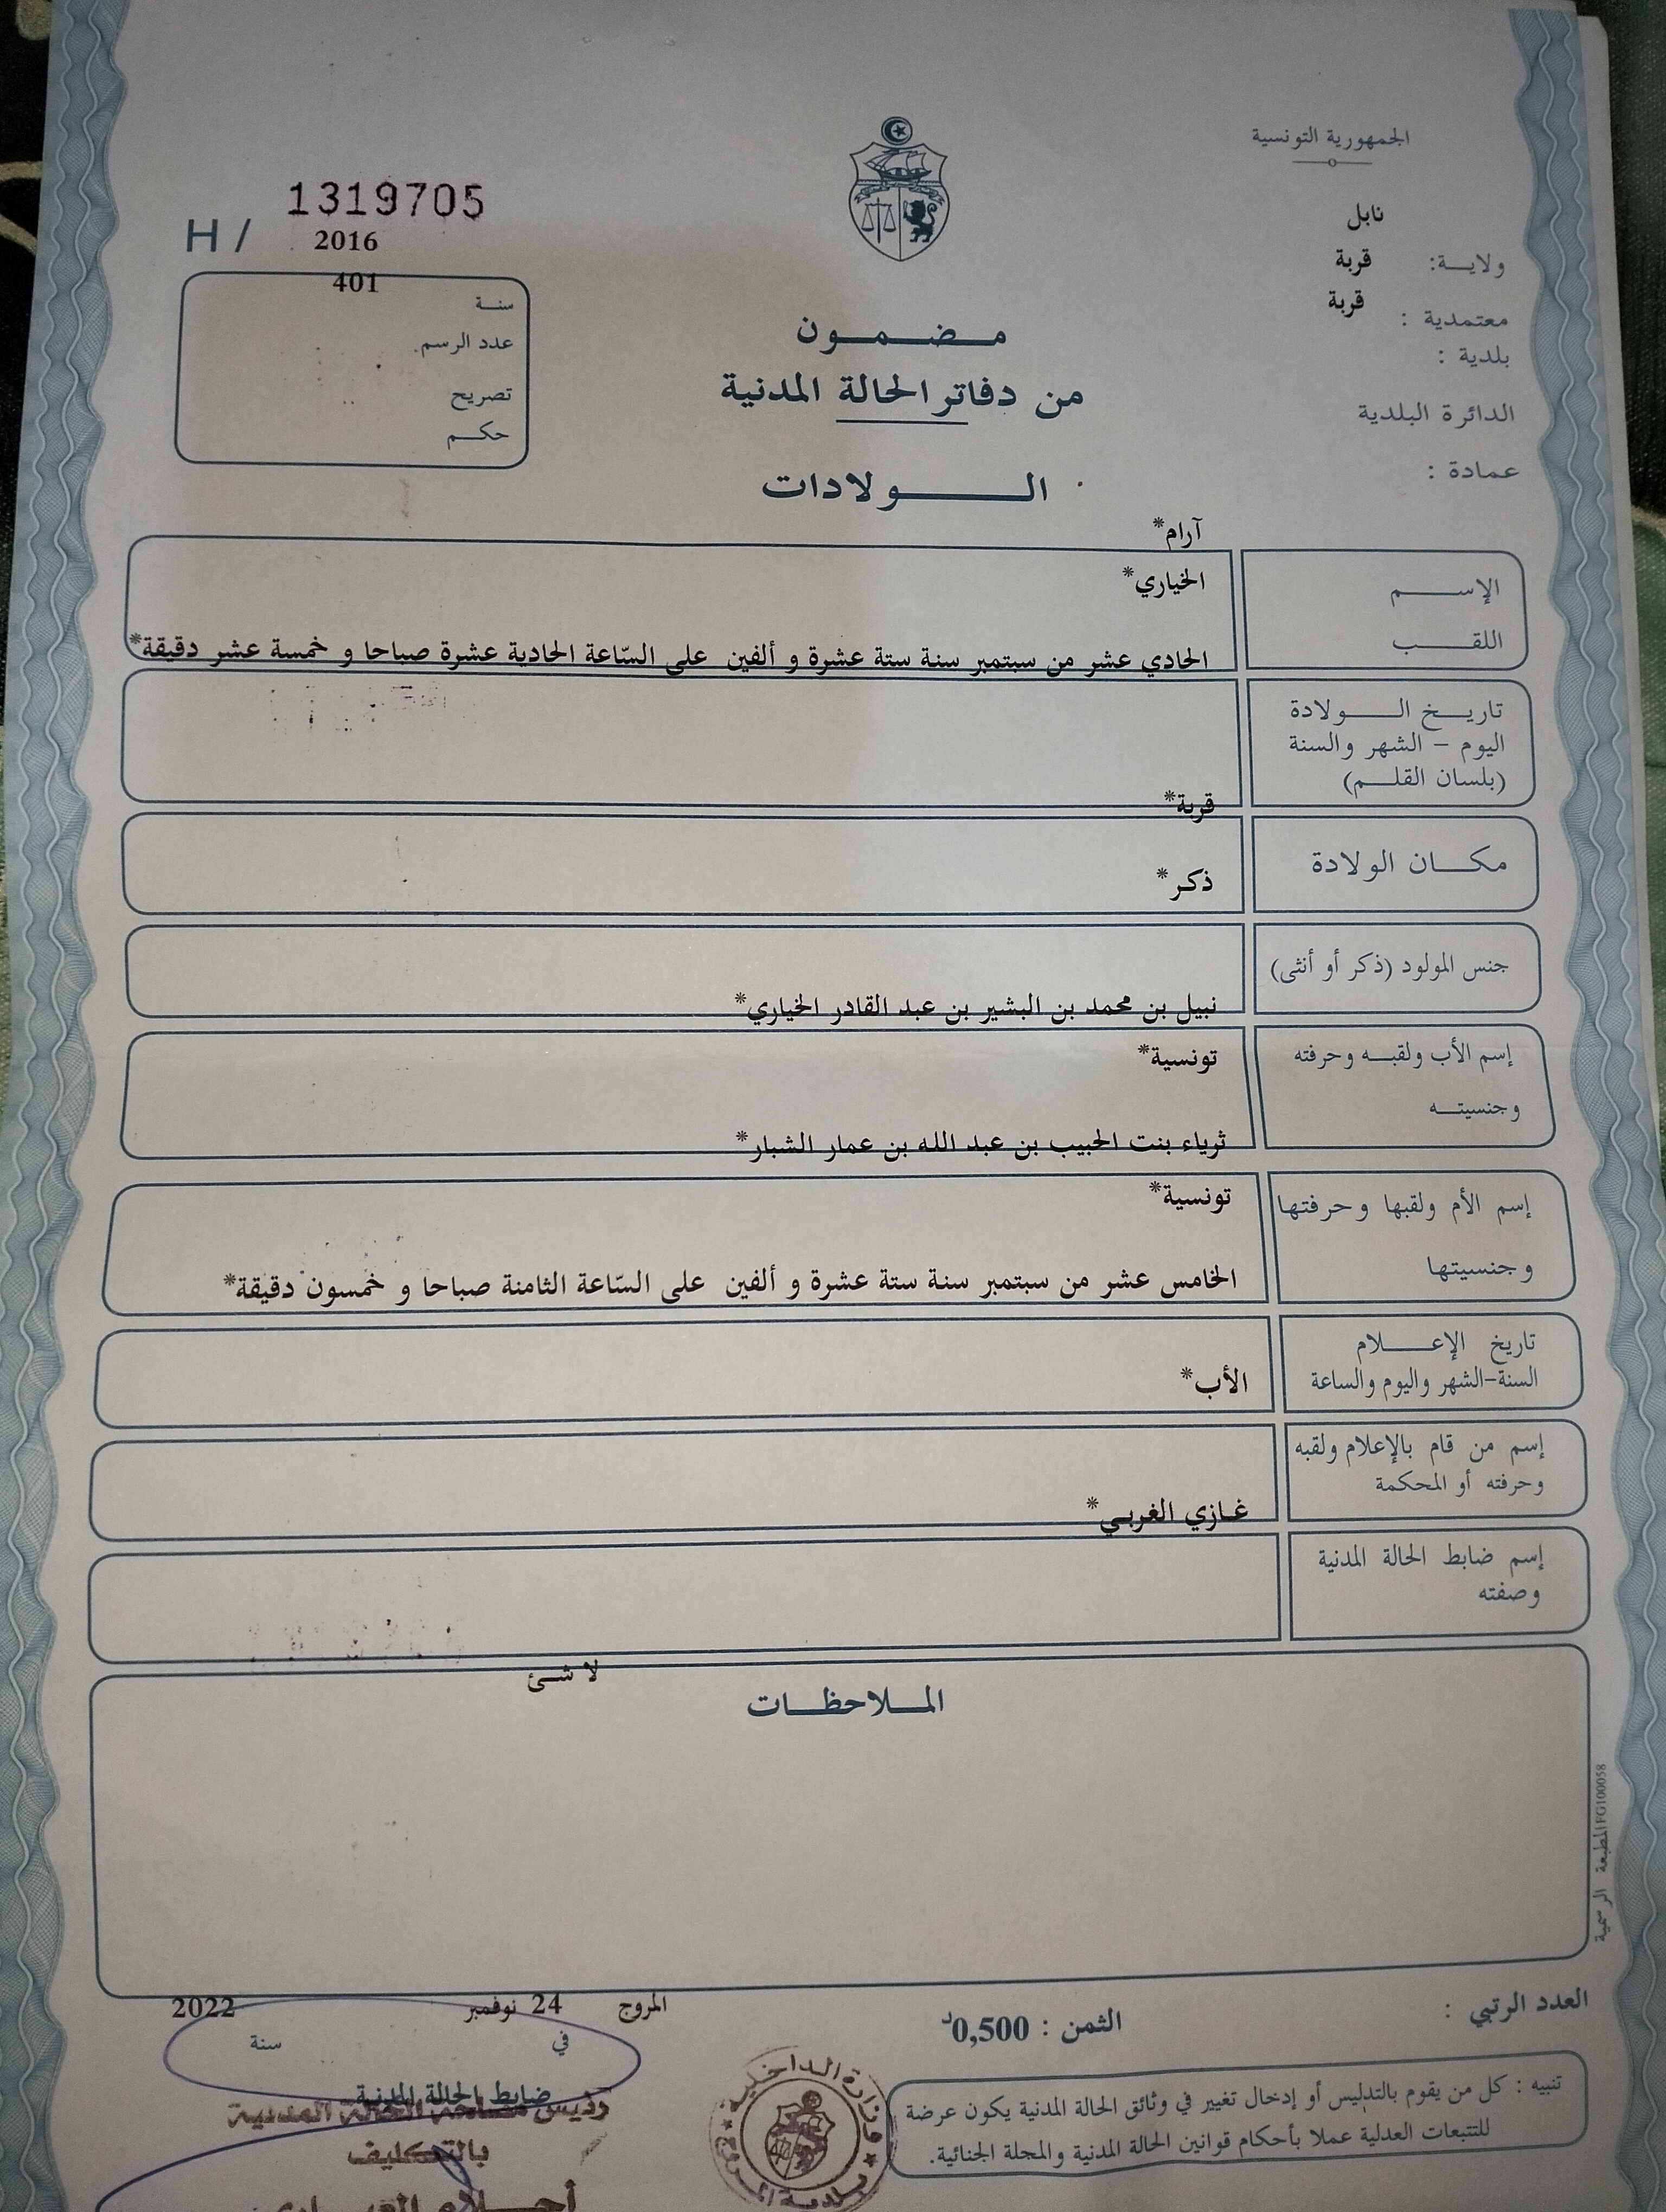 الجمهورية التونسية
نابل
ولايـــة:
قربة
معتمدية :
قربة
بلدية :
الدائرة البلدية
عمادة :
1319705
H /
2016
401
سنـة
عدد الرسم.
تصريح
حكـم
مـضـمـون
من دفاتر الحالة المدنية
الـــولادات
آرام*
الإســـم
الخياري*
اللقـــب
الحادي عشر من سبتمبر سنة ستة عشرة و ألفين على السّاعة الحادية عشرة صباحا و خمسة عشر دقيقة*
تاريـخ الـــولادة
اليوم – الشهر والسنة
(بلسان القلـم)
قربة*
مكـــان الولادة
ذكر*
جنس المولود (ذكر أو أنثى)
نبيل بن محمد بن البشير بن عبد القادر الخياري*
إسم الأب ولقبـه وحرفته
تونسية*
وجنسيتـه
ثرياء بنت الحبيب بن عبد الله بن عمار الشبار*
إسم الأم ولقبها وحرفتها
تونسية*
وجنسيتها
الخامس عشر من سبتمبر سنة ستة عشرة و ألفين على السّاعة الثامنة صباحا و خمسون دقيقة*
تاريخ الإعـــلام
السنة-الشهر واليوم والساعة
الأب*
إسم من قام بالإعلام ولقبه
وحرفته أو المحكمة
غازي الغربي*
إسم ضابط الحالة المدنية
وصفته
لا شئ
المـلاحظـات
المطبعة الرسمية FG100058
العدد الرتبي :
الثمن : 0,500د
المروج 24 نوفمبر 2022
في سنة
ضابط الحالة المدنية
رئيس مصلحة الحالة المدنية
بالتكليف
أحـلام
وزارة الداخلية
بلدية المروج
تنبيه : كل من يقوم بالتدليس أو إدخال تغيير في وثائق الحالة المدنية يكون عرضة
للتتبعات العدلية عملا بأحكام قوانين الحالة المدنية والمجلة الجنائية.